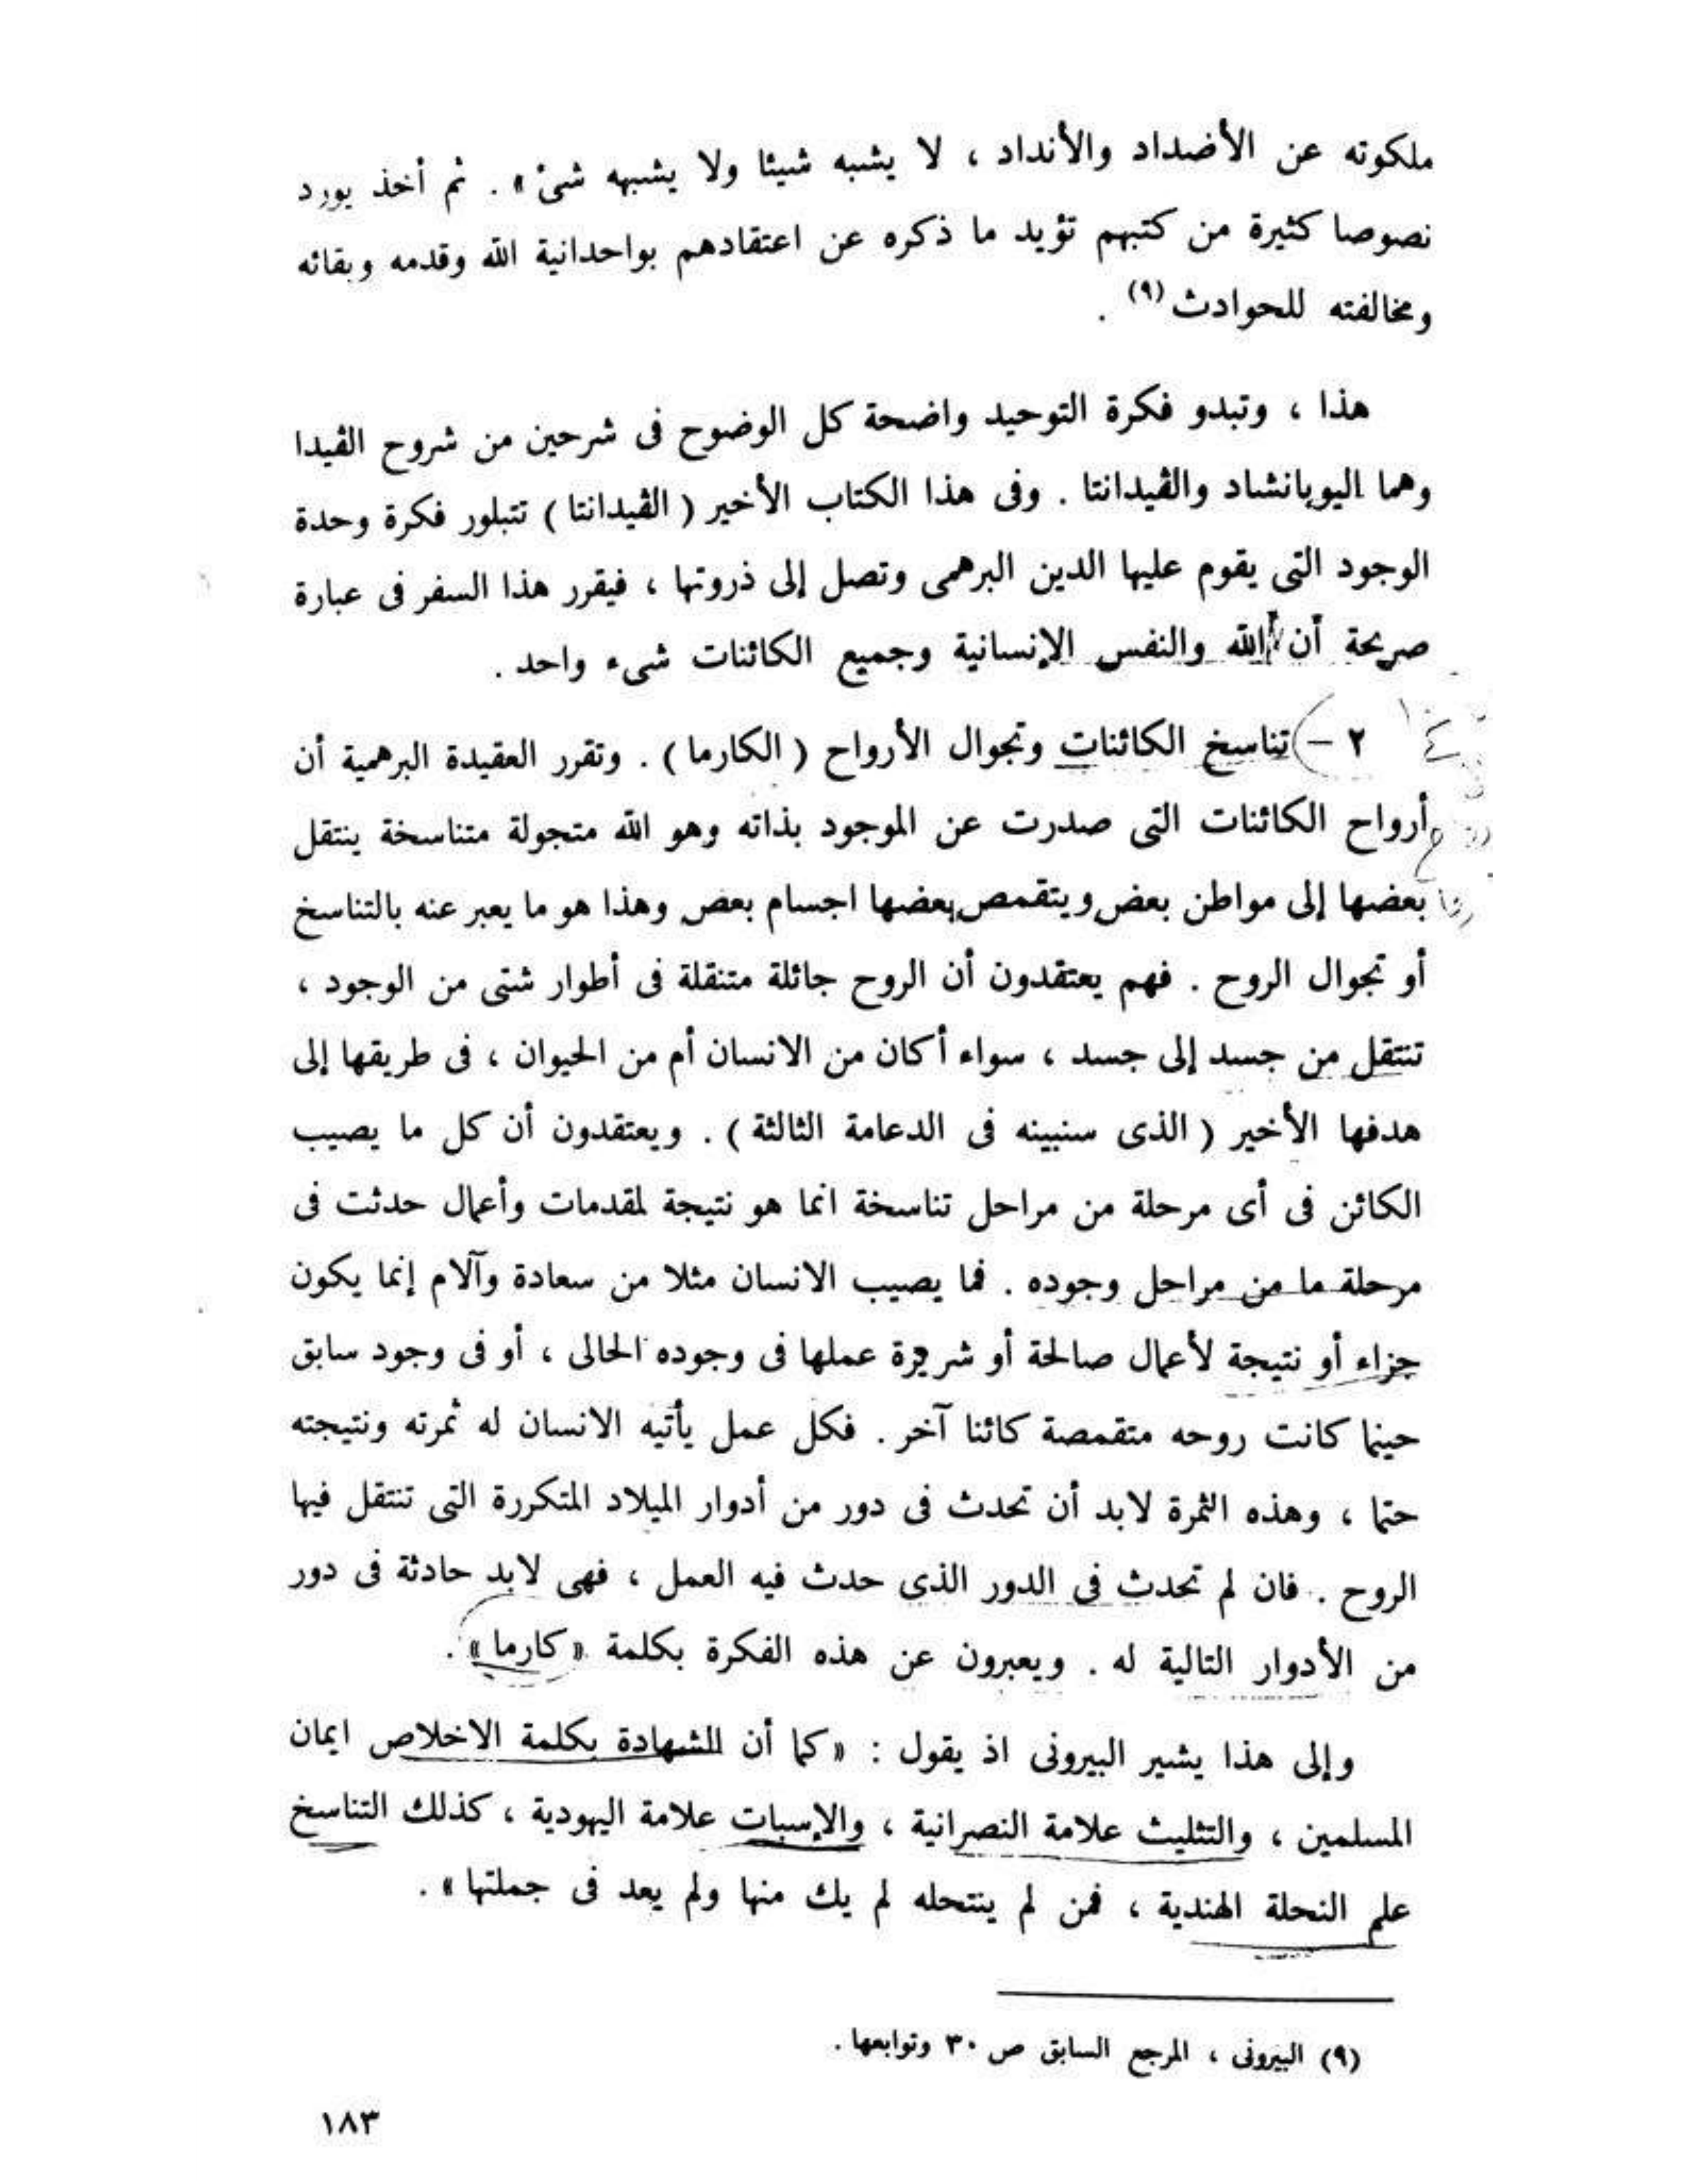 ملكوته عن الأضداد والأنداد ، لا يشبه شيئا ولا يشبهه شئ » . ثم أخذ يورد
نصوصا كثيرة من كتبهم تؤيد ما ذكره عن اعتقادهم بواحدانية الله وقدمه وبقائه
ومخالفته للحوادث (٩) .
هذا ، وتبدو فكرة التوحيد واضحة كل الوضوح فى شرحين من شروح الڤيدا
وهما اليوبانشاد والڤيدانتا . وفى هذا الكتاب الأخير ( الڤيدانتا ) تتبلور فكرة وحدة
الوجود التى يقوم عليها الدين البرهمى وتصل إلى ذروتها ، فيقرر هذا السفر فى عبارة
صريحة أن الله والنفس الإنسانية وجميع الكائنات شىء واحد .
٢ – تناسخ الكائنات وتجوال الأرواح ( الكارما ) . وتقرر العقيدة البرهمية أن
أرواح الكائنات التى صدرت عن الموجود بذاته وهو الله متجولة متناسخة ينتقل
بعضها إلى مواطن بعض ويتقمص بعضها اجسام بعض وهذا هو ما يعبر عنه بالتناسخ
أو تجوال الروح . فهم يعتقدون أن الروح جائلة متنقلة فى أطوار شتى من الوجود ،
تنتقل من جسد إلى جسد ، سواء أكان من الانسان أم من الحيوان ، فى طريقها إلى
هدفها الأخير ( الذى سنبينه فى الدعامة الثالثة ) . ويعتقدون أن كل ما يصيب
الكائن فى أى مرحلة من مراحل تناسخة انما هو نتيجة لمقدمات وأعمال حدثت فى
مرحلة ما من مراحل وجوده . فما يصيب الانسان مثلا من سعادة وآلام إنما يكون
جزاء أو نتيجة لأعمال صالحة أو شريرة عملها فى وجوده الحالى ، أو فى وجود سابق
حينما كانت روحه متقمصة كائنا آخر . فكل عمل يأتيه الانسان له ثمرته ونتيجته
حتما ، وهذه الثمرة لابد أن تحدث فى دور من أدوار الميلاد المتكررة التى تنتقل فيها
الروح . فان لم تحدث فى الدور الذى حدث فيه العمل ، فهى لابد حادثة فى دور
من الأدوار التالية له . ويعبرون عن هذه الفكرة بكلمة « كارما » .
وإلى هذا يشير البيرونى اذ يقول : « كما أن للشهادة بكلمة الاخلاص ايمان
المسلمين ، والتثليث علامة النصرانية ، والإسبات علامة اليهودية ، كذلك التناسخ
علم النحلة الهندية ، فمن لم ينتحله لم يك منها ولم يعد فى جملتها » .
(٩) البيرونى ، المرجع السابق ص ٣٠ وتوابعها .
١٨٣